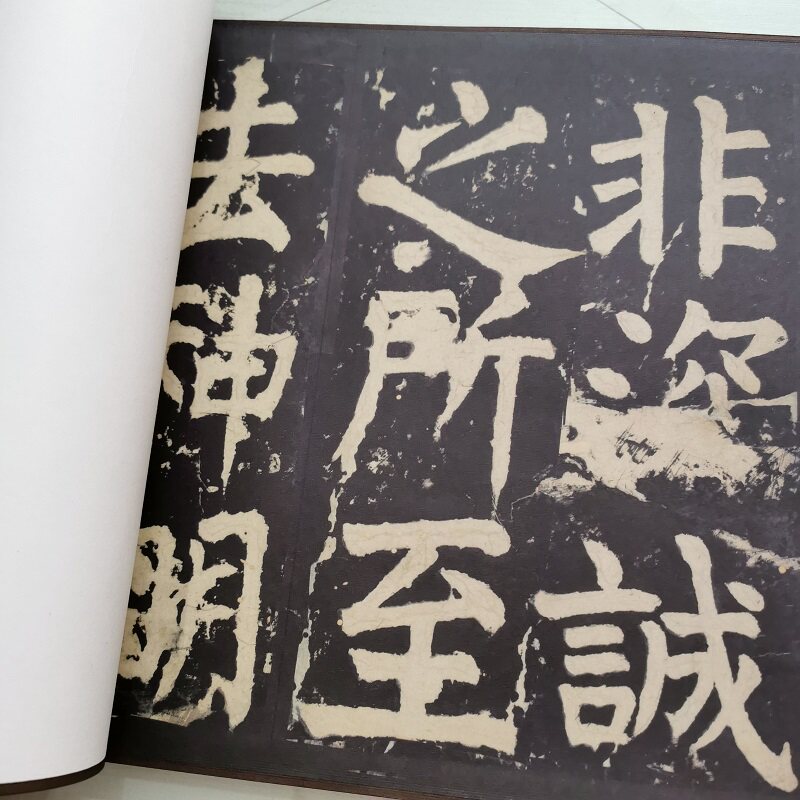 非誠
之所至
去神明